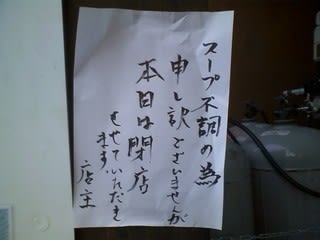 スープ不調の為
申し訳ございませんが
本日は閉店
させていただき
ます
店主